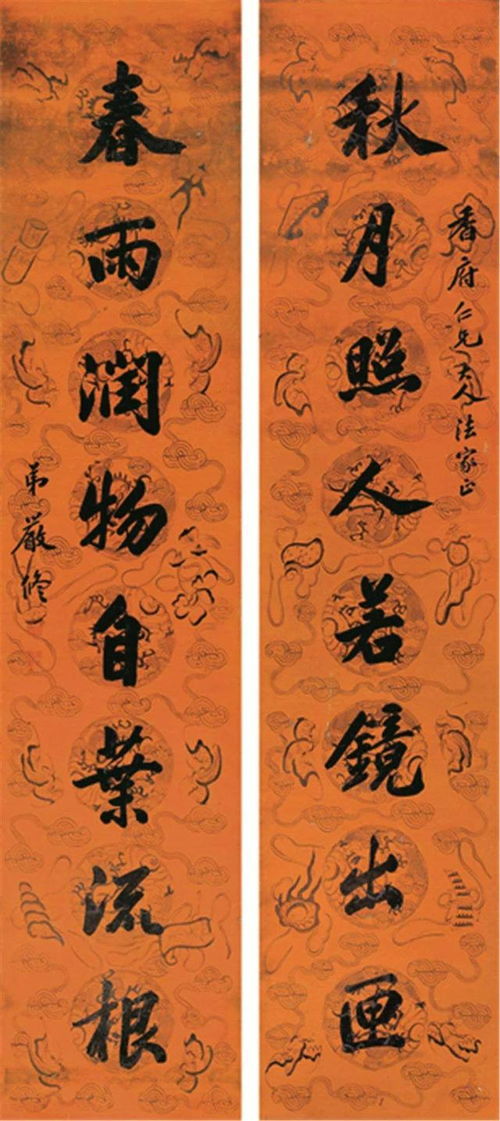 秋月照人若鏡出匣
香府仁兄大人法家正
春雨潤物自葉流根
弟嚴修